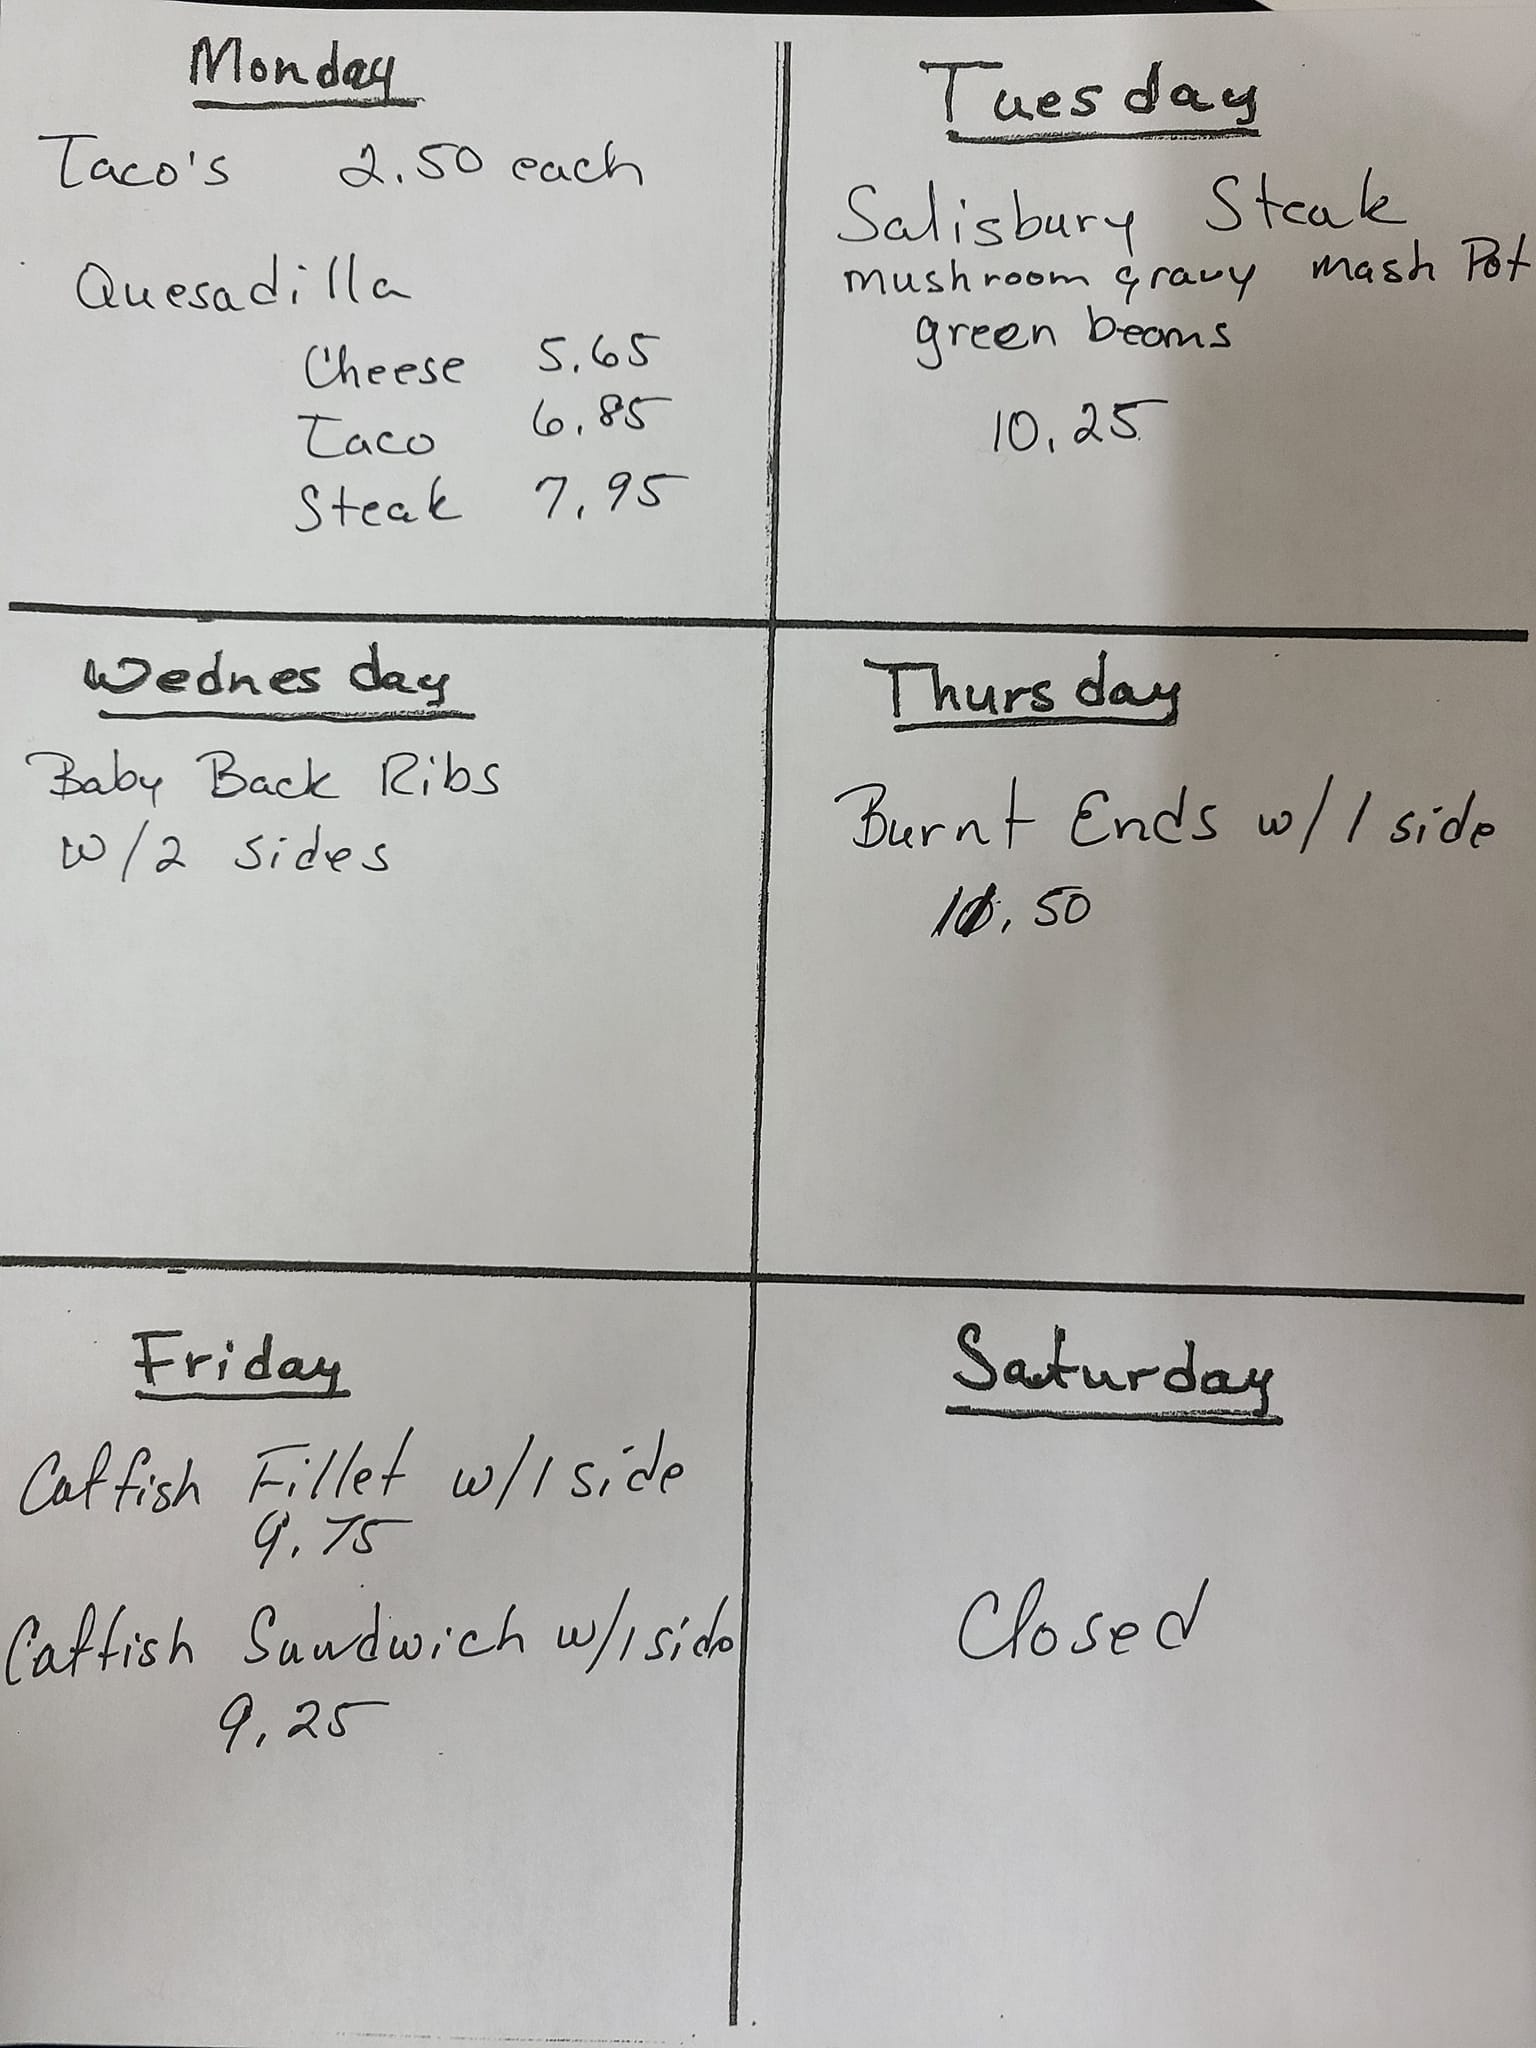 Monday
Taco's 2.50 each
Quesadilla
Cheese 5.65
Taco 6.85
Steak 7.95
Tuesday
Salisbury Steak
mushroom gravy mash Pot
green beans
10.25
Wednesday
Baby Back Ribs
w/2 sides
Thursday
Burnt Ends w/1 side
11.50
Friday
Catfish Fillet w/1 side
9.75
Catfish Sandwich w/1 side
9.25
Saturday
Closed